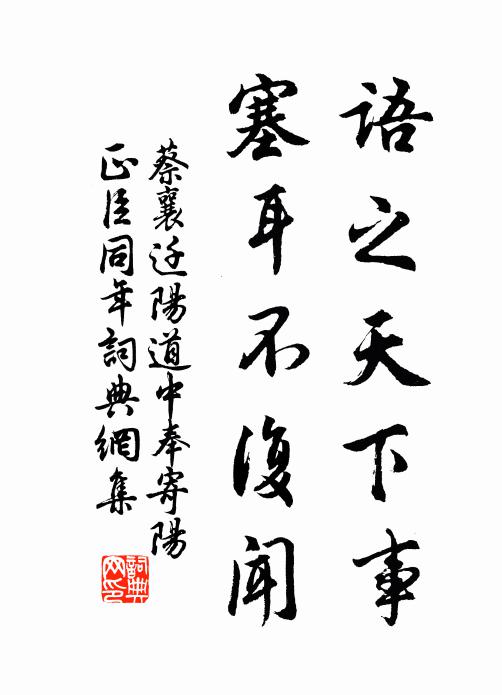 語之天下事
塞耳不復聞
蔡襄迁陽道中奉寄陽
正臣同年詞典網集
詞典网印